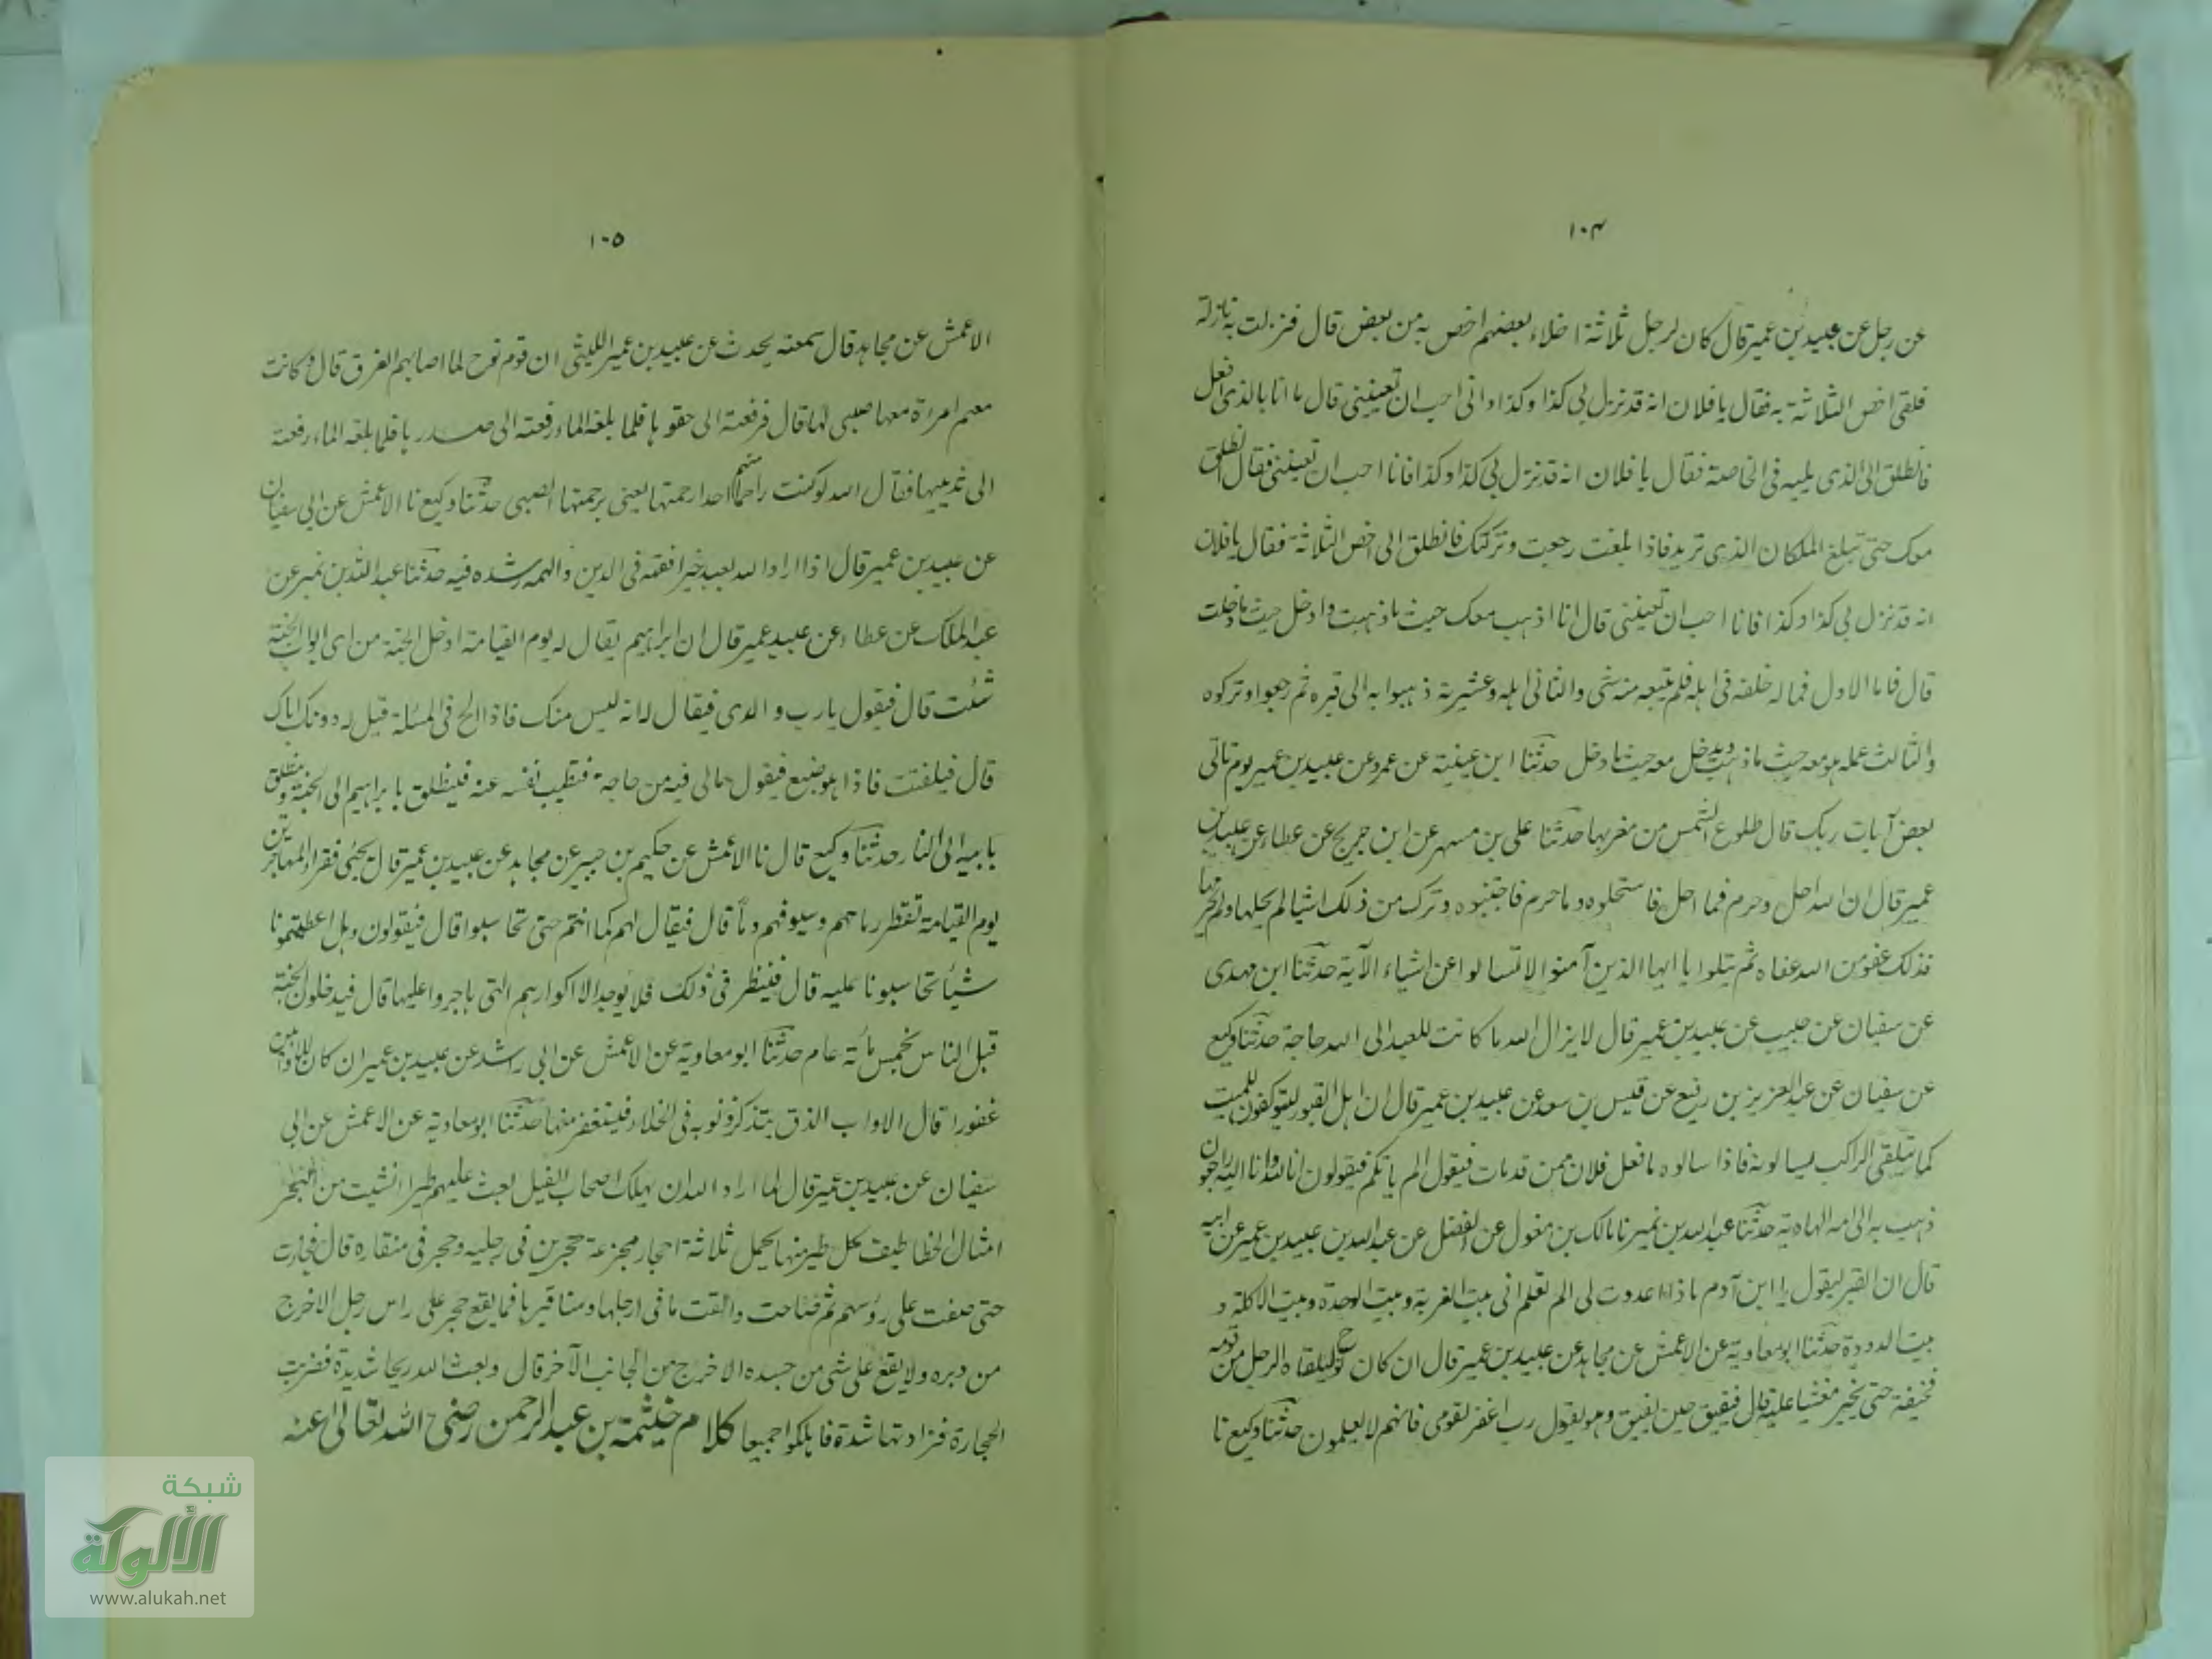 ١٠٤
عن رجل عن عبيد بن عمير قال كان لرجل ثلاثة اخلاء بعضهم اخص به من بعض قال فنزلت به نازلة
فلقى اخص الثلاثة به فقال يا فلان انه قد نزل بي كذا وكذا وانى احب ان تعيننى قال ما انا بالذى افعل
فانطلق الى الذى يليه فى الخاصة فقال يا فلان انه قد نزل بي كذا وكذا فانا احب ان تعيننى فقال انطلق
معك حتى تبلغ المكان الذى تريد فاذا بلغت رجعت وتركتك فانطلق الى اخص الثلاثة فقال يا فلان
انه قد نزل بي كذا وكذا فانا احب ان تعيننى قال انا اذهب معك حيث ما ذهبت وادخل حيث ما دخلت
قال فاما الاول فماله خلفه فى اهله فلم يتبعه منه شى والثانى اهله وعشيرته ذهبوا به الى قبره ثم رجعوا وتركوه
والثالث عمله هو معه حيث ما ذهب ويدخل معه حيث ما دخل حدثنا ابن عيينة عن عمرو عن عبيد بن عمير يوم تاتى
بعض آيات ربك قال طلوع الشمس من مغربها حدثنا على بن مسهر عن ابن جريج عن عطاء عن عبيد بن
عمير قال ان الله احل وحرم فما احل فاستحلوه وما حرم فاجتنبوه وترك من ذلك اشيا لم يحلها ولم يحرمها
فذلك عفو من الله عفاه ثم يتلوا يا ايها الذين آمنوا لا تسالوا عن اشياء الآية حدثنا ابن مهدى
عن سفيان عن حبيب عن عبيد بن عمير قال لا يزال لله ما كانت للعبد الى الله حاجة حدثنا وكيع
عن سفيان عن عبد العزيز بن رفيع عن قيس بن سعد عن عبيد بن عمير قال ان اهل القبور ليتوكفون للميت
كما يتلقى الراكب يسالونه فاذا سالوه ما فعل فلان ممن قد مات فيقول الم ياتكم فيقولون انا لله وانا اليه راجعون
ذهب به الى امه الهاوية حدثنا عبد الله بن نمير نا مالك بن مغول عن الفضل عن عبد الله بن عبيد بن عمير عن ابيه
قال ان القبر ليقول يا ابن آدم ماذا اعددت لى الم تعلم انى بيت الغربة وبيت الوحدة وبيت الاكلة و
بيت الدودة حدثنا ابو معاوية عن الاعمش عن مجاهد عن عبيد بن عمير قال ان كان نوح ليلقاه الرجل من قومه
فخنقه حتى يخر مغشيا عليه قال فيفيق حين يفيق وهو يقول رب اغفر لقومى فانهم لا يعلمون حدثنا وكيع نا
١٠٥
الاعمش عن مجاهد قال سمعته يحدث عن عبيد بن عمير الليثى ان قوم نوح لما اصابهم الغرق قال وكانت
معهم امراة معها صبى لها قال فرفعته الى حقوها فلما بلغه الماء رفعته الى صدرها فلما بلغه الماء رفعته
الى ثدييها فقال الله لو كنت راحما منهم احدا رحمتها يعنى برحمتها الصبى حدثنا وكيع نا الاعمش عن ابى سفيان
عن عبيد بن عمير قال اذا اراد الله بعبد خيرا فقهه فى الدين والهمه رشده فيه حدثنا عبد الله بن نمير عن
عبد الملك عن عطاء عن عبيد عمير قال ان ابراهيم يقال له يوم القيامة ادخل الجنة من اى ابواب الجنة
شئت قال فيقول يا رب والدى فيقال له انه ليس منك فاذا الح فى المسئلة قيل له دونك اباك
قال فيلفتت فاذا هو ضبع فيقول مالى فيه من حاجة فتطيب نفسه عنه فينطلق بابراهيم الى الجنة وينطلق
بابيه الى النار حدثنا وكيع قال نا الاعمش عن حكيم بن جبير عن مجاهد عن عبيد بن عمير قال يجئى فقراء المهاجرين
يوم القيامة تقطر رماحهم وسيوفهم دما قال فيقال لهم كما انتم حتى تحاسبوا قال فيقولون وهل اعطيتمونا
شيأ تحاسبونا عليه قال فينظر فى ذلك فلا يوجد الا اكوارهم التى هاجروا عليها قال فيدخلون الجنة
قبل الناس بخمس مائة عام حدثنا ابو معاوية عن الاعمش عن ابى راشد عن عبيد بن عمير ان كان للاوابين
غفورا قال الاواب الذى يتذكر ذنوبه فى الخلاء فيستغفر منها حدثنا ابو معاوية عن الاعمش عن ابى
سفيان عن عبيد بن عمير قال لما اراد الله ان يهلك اصحاب الفيل بعث عليهم طيرا انشيت من البحر
امثال الخطاطيف كل طير منها يحمل ثلاثة احجار مجزعة حجرين فى رجليه وحجر فى منقاره قال فجاءت
حتى صفت على رؤسهم ثم صاحت والقت ما فى ارجلها ومناقيرها فما يقع حجر على راس رجل الا خرج
من دبره ولا يقع على شى من جسده الا خرج من الجانب الآخر قال وبعث الله ريحا شديدة فضربت
الحجارة فزادتها شدة فاهلكوا جميعا كلام خيثمة بن عبد الرحمن رضى الله تعالى عنه
شبكة
الألوكة
www.alukah.net